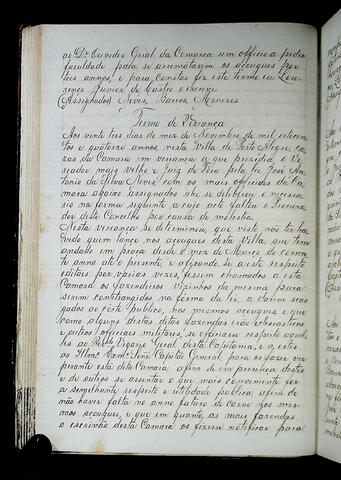 ao Dr. Ouvidor Geral da Comarca um officio a pedir
faculdade para se arrematarem os açougues por
tres annos, e para constar fez este termo eu Lou-
renço Junior de Castro o escrevi
(Assignados) Neves, Barros, Menezes
Termo de Vereança
Aos vinte tres dias do mez de Novembro de mil, setecen-
tos e quatorze annos, nesta Villa de Porto Alegre, ca-
zas da Camara em vereança a que prezidio o Ve-
reador mais velho e Juiz de Fora pela lei José An-
tonio da Silva Neves, com os mais officiaes da Ca-
mara abaixo assignados ahi se deliberou o necessa-
rio na forma seguinte a cujo acto faltou o Procura-
dor deste Concelho por causa de molestia.
Nesta vereança se determinou, que visto não ter ha-
vido quem lance nos açougues desta Villa, que tem
andado em praça desde o mez de Março do corren-
te anno até o prezente, e afixando-se a este respeito
editaes por varias vezes, fossem chamados a esta
Camara os fazendeiros vizinhos da mesma para
serem constrangidos na forma da lei, a darem seos
gados ao corte publico, nos mesmos açougues, e que
como alguns destas ditas fazendas são eclesiasticos
e outros officiaes militares, se oficiasse respeito aquel-
les ao Rdo. Vigario Geral desta Capitania, e a estes
ao Illmo. Exmo. Snr. Capitão General para os fazer vir
perante esta dita Camara afim de em prezença destes
e de outros se assentar o que mais conveniente for
a semelhante respeito e utilidade publica, afim de
não haver falta no anno futuro de carne nos mes-
mos açougues, e que em quanto, as mais fazendas
o escrivão desta Camara os fizesse notificar para